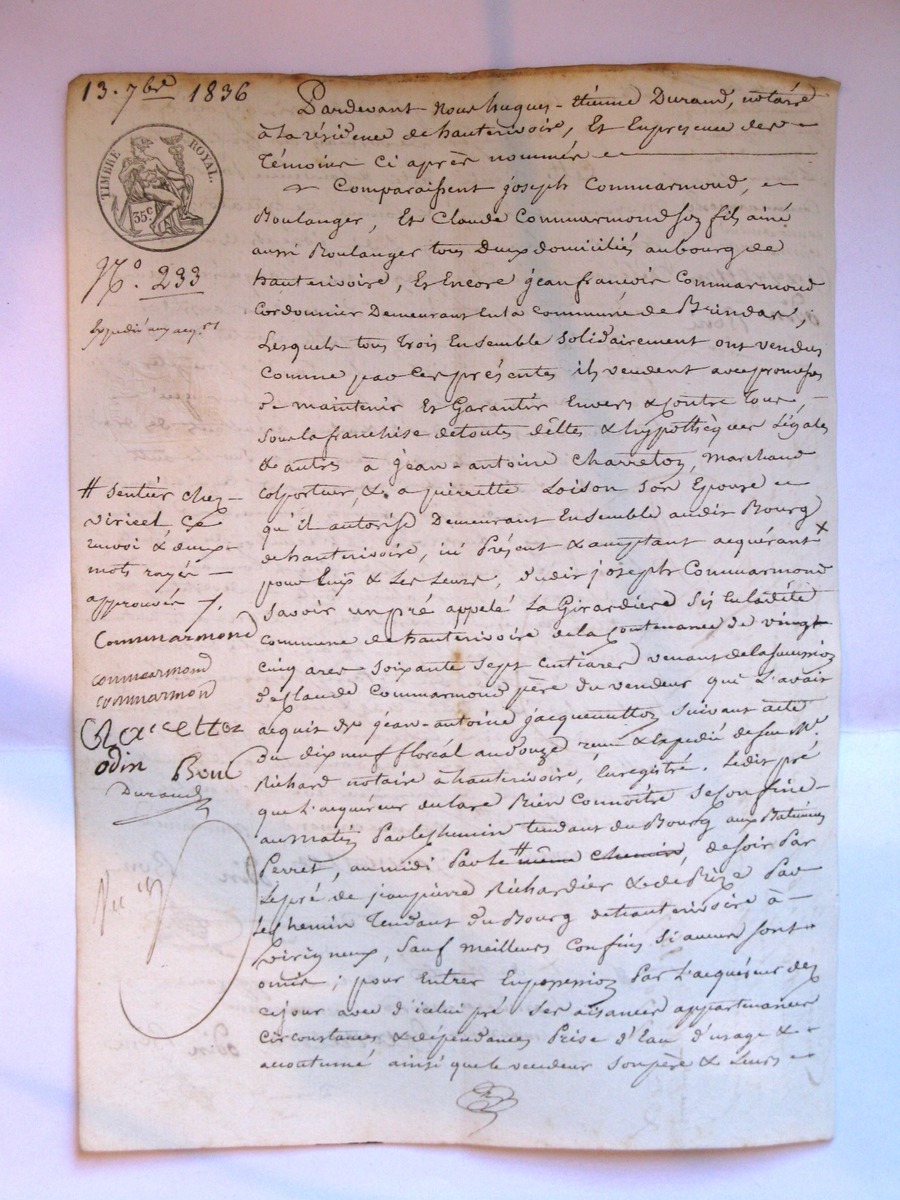 13. 7bre 1836
TIMBRE ROYAL.
35c
N°. 233
Expédié aux acqrs
Pardevant Nous hugues-étienne Durand, notaire
à la résidence de hauterivoire, Et En présence des
témoins ci après nommés
Comparaissent joseph Commarmond,
Boulanger, Et Claude Commarmond son fils ainé
aussi Boulanger tous Deux domiciliés au bourg de
hauterivoire, Et Encore jean françois Commarmond
Cordonnier Demeurant En la commune de Brindas,
Lesquels tous trois Ensemble Solidairement ont vendus
Comme par Ces présentes ils vendent avec promesses
de maintenir Et Garantir Envers & contre tous,
sous la franchise de toutes dêttes & hypothèques Légales
& autres à jean-antoine Charretton, Marchand
colporteur, & a pierrette Loison Son Epouse
qu'il autorise Demeurant Ensemble au dit Bourg
de hauterivoire, ici Présent & acceptant acquérant x
pour Eux & Les Leurs, dudit joseph Commarmond
Savoir un pré appelé La Girardière Sis En la dite
Commune de hauterivoire de la Contenance de vingt
cinq ares Soixante Sept centiares venant de la succession
de Claude Commarmond père du vendeur qui L'avait
acquis de jean-antoine jacquemetton Suivant acte
Du dix neuf floréal an douze reçu & Expédié de feu Me.
Richard notaire à hauterivoire, Enregistré. Ledit pré
que L'acquéreur déclare Bien Connoître Se Confine
au Matin Par le chemin tendant du Bourg aux Batimens
Perret, au midi Par le # même chemin, de Soir Par
Le pré de jean pierre Richardier & de Bize Par
Le chemin Tendant du Bourg de hauterivoire à
Virigneux, Sauf meilleurs Confins Si aucuns Sont
omis; pour Entrer En possession Par L'acquéreur dez
ce jour avec d'icelui pré Ses aisances appartenances
Circonstances & dépendances Prise d'Eau d'usage &
accoutumé ainsi que le vendeur Son père & Leurs
# Sentier chez
viricel, Ce
renvoi & deux
mots rayés
approuvés
Commarmond
commarmond
commarmond
Charretton
odin Bon
Durand